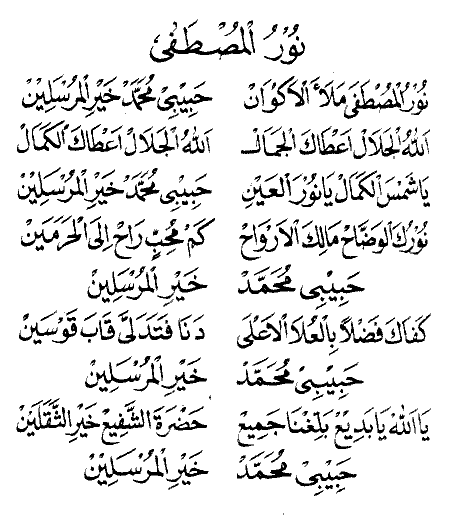 نُوْرُ الْمُصْطَفَى
نُوْرُ الْمُصْطَفَى مَلَأَ الْاَكْوَانْ حَبِيْبِيْ مُحَمَّدْ خَيْرِ الْمُرْسَلِيْنْ
اَللهُ الْجَلَالْ اَعْطَاكَ الْجَمَالْ اَللهُ الْجَلَالْ اَعْطَاكَ الْكَمَالْ
يَا شَمْسَ الْكَمَالْ يَا نُوْرَ الْعَيْنِ حَبِيْبِيْ مُحَمَّدْ خَيْرِ الْمُرْسَلِيْنْ
نُوْرُكَ الْوَضَّاحْ مَالِكَ الْاَرْوَاحْ كَمْ مُحِبٍّ رَاحْ اِلَى الْحَرَمَيْنْ
حَبِيْبِيْ مُحَمَّدْ خَيْرِ الْمُرْسَلِيْنْ
كَفَاكَ فَضْلًا بِالْعُلَا الْاَعْلَى دَنَا فَتَدَلَّى قَابَ قَوْسَيْنْ
حَبِيْبِيْ مُحَمَّدْ خَيْرِ الْمُرْسَلِيْنْ
يَا اَللهْ يَا بَدِيْعْ بَلِّغْنَا جَمِيْعْ حَضْرَةَ الشَّفِيْعْ خَيْرِ الثَّقَلَيْنْ
حَبِيْبِيْ مُحَمَّدْ خَيْرِ الْمُرْسَلِيْنْ